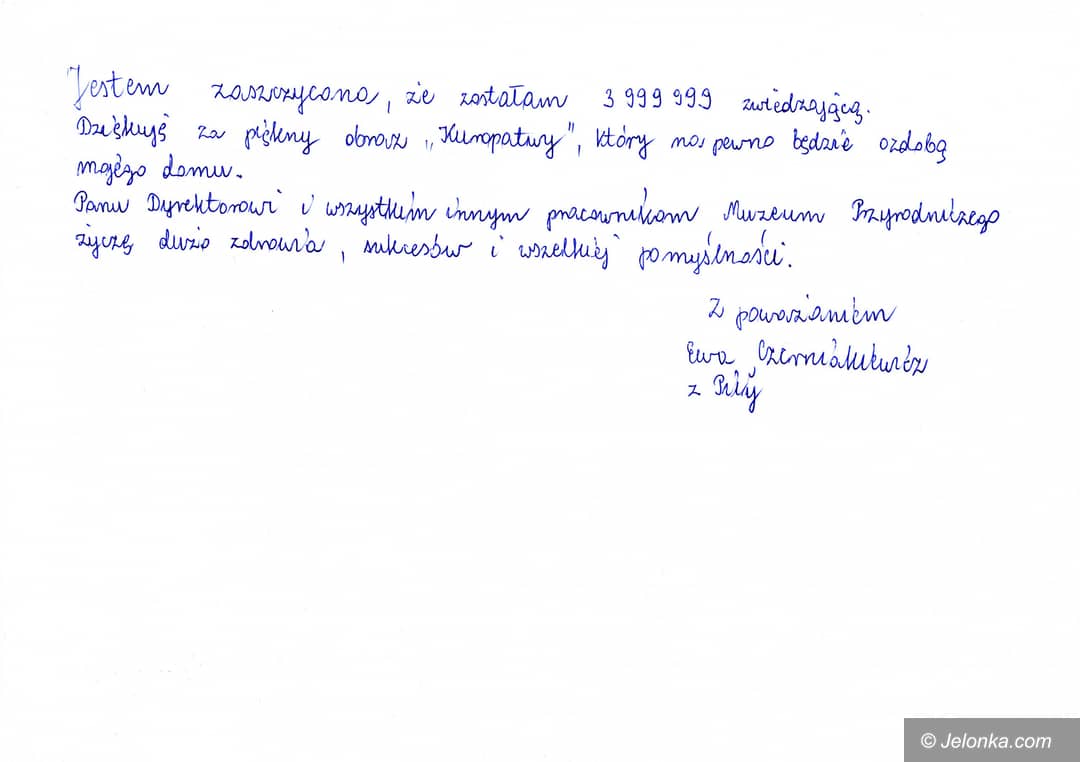 Jestem zaszczycona, że zostałam 3 999 999 zwiedzającą.
Dziękuję za piękny obraz „Kuropatwy", który na pewno będzie ozdobą
mojego domu.
Panu Dyrektorowi i wszystkim innym pracownikom Muzeum Przyrodniczego
życzę dużo zdrowia, sukcesów i wszelkiej pomyślności.
Z poważaniem
Ewa Czerniakiewicz
z Piły
© Jelonka.com